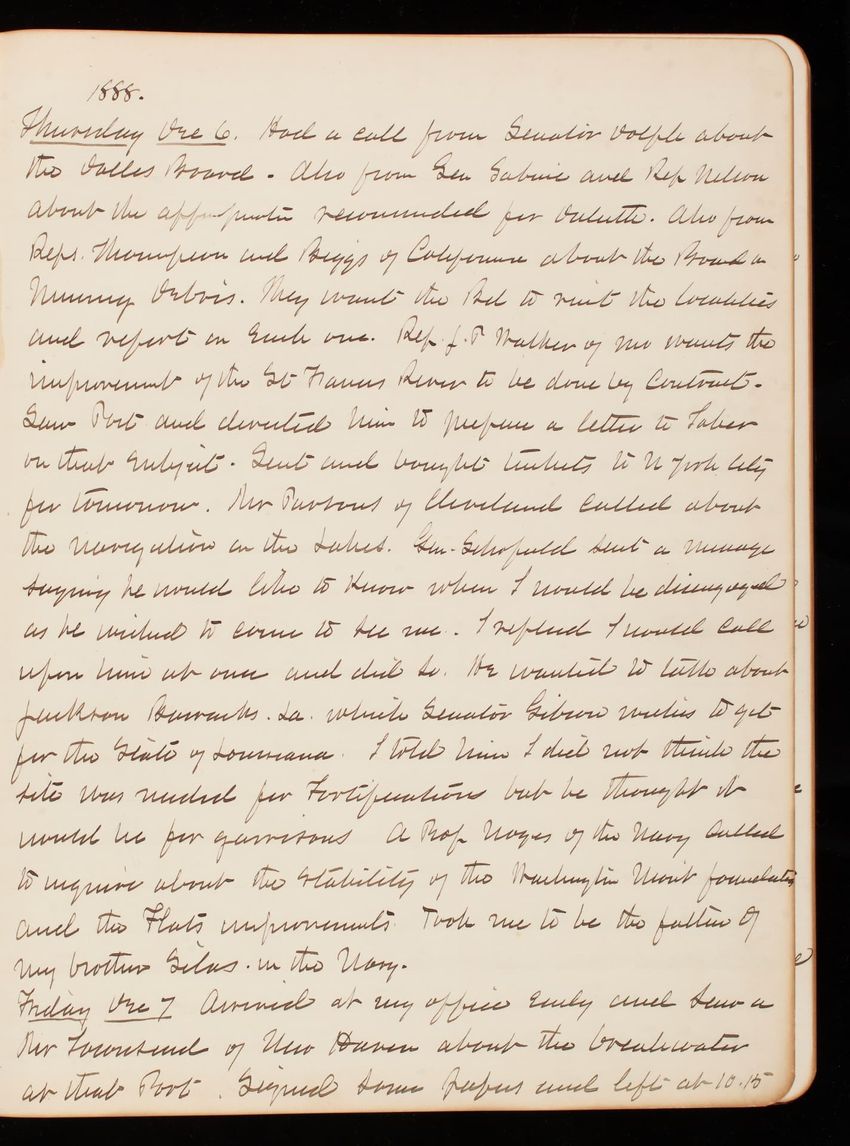 1888.
Thursday Dec 6. Had a call from Senator Dolph about
the Dalles Board. Also from Sen Sabine and Rep Nelson
about the appropriatn recommended for Duluth. Also from
Reps. Thompson and Biggs of California about the Board on
Mining Debris. They want the Bd to visit the localities
and report on each one. Rep. J. P Walker of Mo wants the
improvement of the St Francis River to be done by Contract.
Saw Post and directed him to prepare a letter to Taber
on that subject. Sent and bought tickets to N York City
for tomorrow. Mr Parsons of Cleveland called about
the navigation on the Lakes. Gen. Schofield sent a message
saying he would like to know when I would be disengaged
as he wished to come to see me. I replied I would call
upon him at once and did so. He wanted to talk about
Jackson Barracks. La. which Senator Gibson wishes to get
for the State of Louisiana. I told him I did not think the
site was needed for Fortifications but he thought it
would be for garrisons A Prof Noyes of the Navy called
to inquire about the stability of the Washington Mont foundation
and the Flats improvements. Took me to be the father of
my brother Silas. in the Navy.
Friday Dec 7 Arrived at my office early and saw a
Mr Townsend of New Haven about the breakwater
at that Port. Signed some papers and left at 10.15